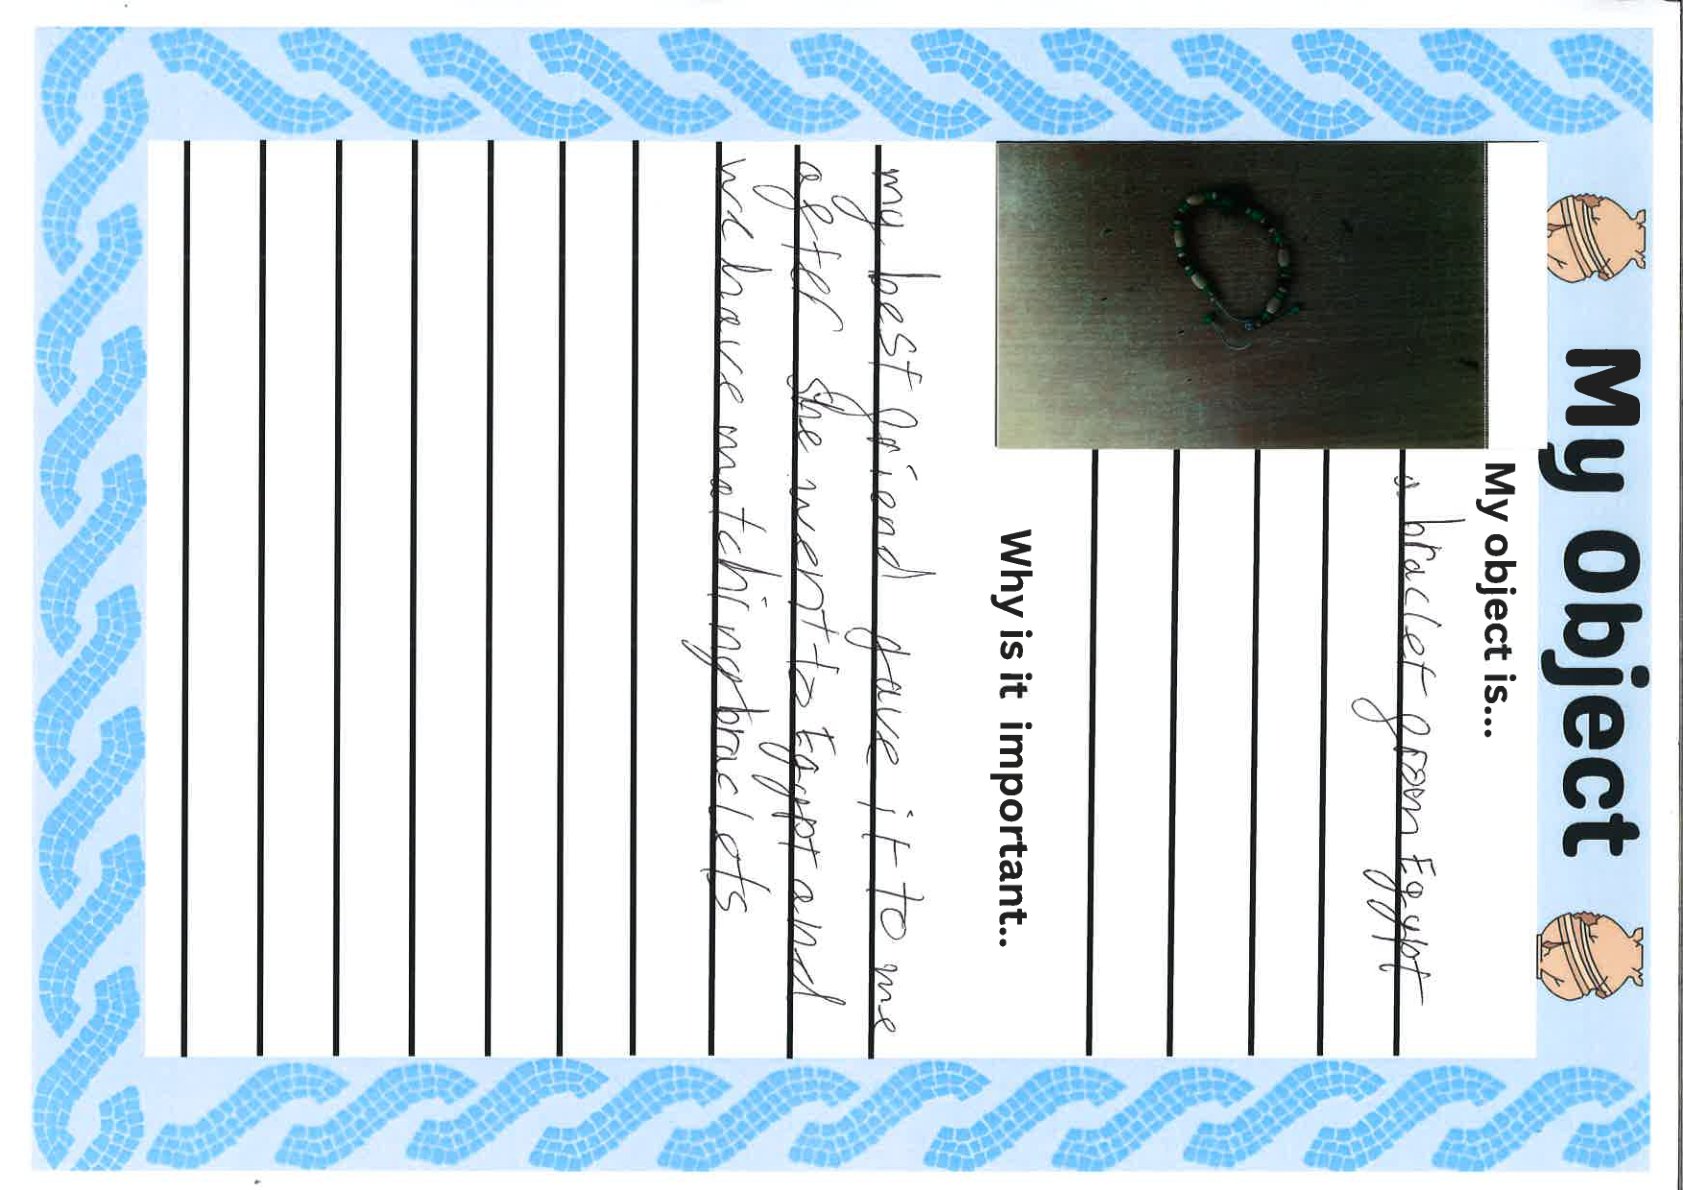 My Object
My object is...
a braclet from Egypt
Why is it important..
my best friend gave it to me
after she went to Egypt and
we have matching braclets